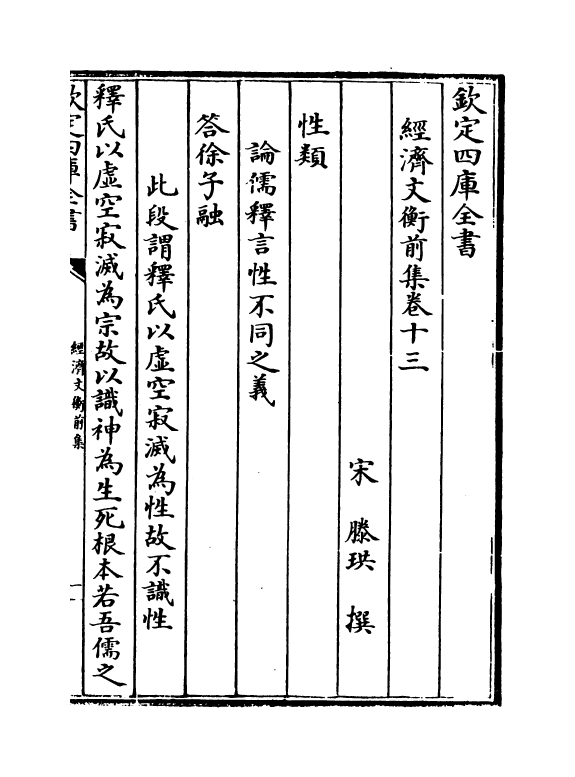 欽定四庫全書
經濟文衡前集卷十三
宋 滕珙 撰
性類
論儒釋言性不同之義
答徐子融
此段謂釋氏以虛空寂滅為性故不識性
釋氏以虛空寂滅為宗故以識神為生死根本若吾儒之
欽定四庫全書
經濟文衡前集
一